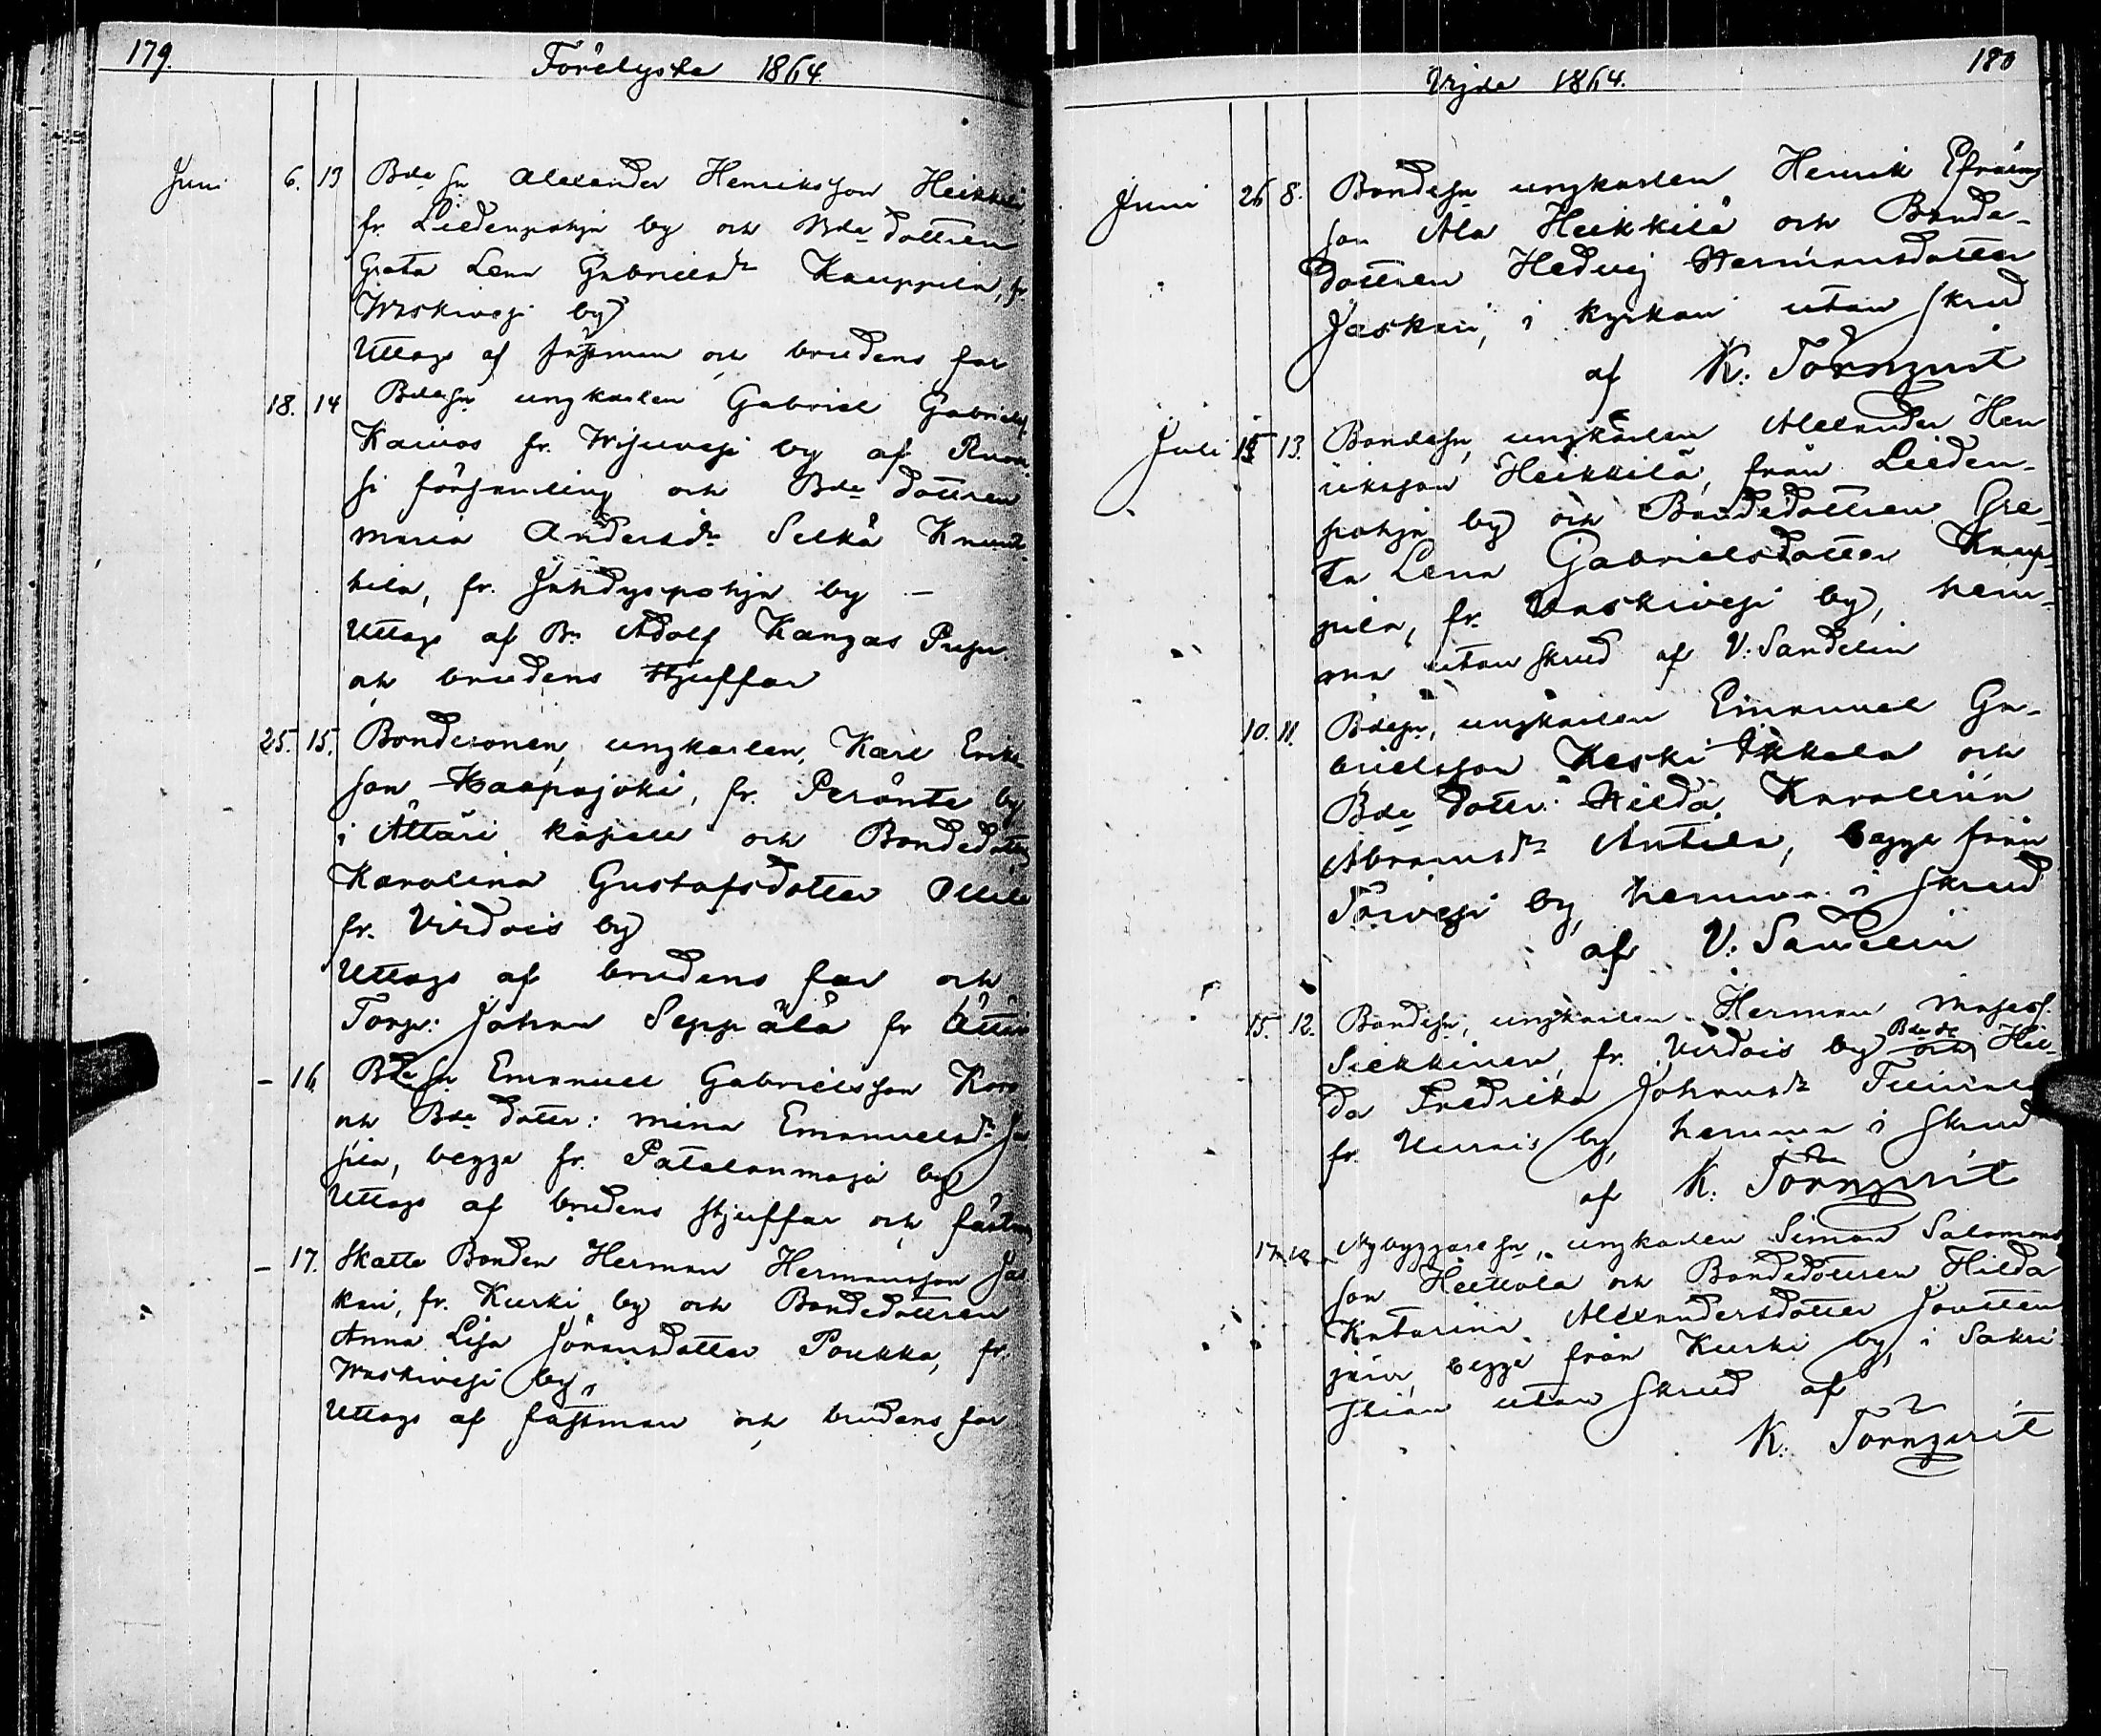 179.
Förelyste 1864
Juni 6. 13 Bde sn Alexander Henriksson Heikkilä
fr. Liedenpohja by och Bde dottren
Greta Lena Gabrielsdr Kauppila, fr.
Waskivesi by
Uttogs af fästman och brudens far
18. 14 Bdesn ungkarlen Gabriel Gabrielss.
Kaivos fr. Wisuvesi by af Ruove-
si församling och Bde dottren
Maria Andersdr Selkä
fr. Jähdyspohja by —
Uttogs af Bn Adolf Kangas
och brudens Styuffar
25. 15. Bondesonen, ungkarlen, Karl Eriks-
son Haapajoki, fr. Peränte by
i Ättäri kapell och Bondedottren
Karolina Gustafsdotter Ollila
fr. Virdois by
Uttogs af brudens far och
Torp: Johan Seppälä fr Ättäri
– 16 Bde sn Emanuel Gabrielsson
och Bde dotter: Mina Emanuelsdr
begge fr. Patalanmaja by
Uttogs af brudens styuffar och fästm
– 17. Skatte Bonden Herman Hermansson Jäs
keri, fr. Kurki by och Bondedottren
Anna Lisa Johansdotter Poukka, fr.
Waskivesi by,
Uttogs af fastman och brudens far
180
Vigde 1864.
Juni 26 8. Bondesn ungkarlen Henrik Efraims
son Ala Heikkilä och Bonde-
dottren Hedvig Hermansdotter
Jäskeri, i kyrkan utan skrud
af K: Törnqvist
Juli 15 13. Bondesn, ungkarlen Alexander Hen
riksson Heikkilä, från Lieden-
pohja by och Bondedottren Gre-
ta Lena Gabrielsdotter Kaup-
pila, fr. Waskivesi by, hem-
ma utan skrud af V: Sandelin
10. 11. Bdesn, ungkarlen Emanuel Ga-
brielsson Keski Ikkala och
Bde dottr: Hilda Karolina
Abramsdr Antila, begge från
Toivesi by, hemma i skrud
af V: Sandelin
15. 12. Bondesn, ungkarlen Herman Mosess.
Siekkinen, fr. Virdois by och Bde dr Hil-
da Fredrika Johansdr
fr. by, hemma i Skrud
af K: Törnqvist
17. Nybyggaresn, ungkarlen Simon Salomons
son Heittola och Bondedottren Hilda
Katarina Alexandersdotter Joutten
järvi, begge från Kurki by, i Sakri-
stian utan skrud af
K: Törnqvist